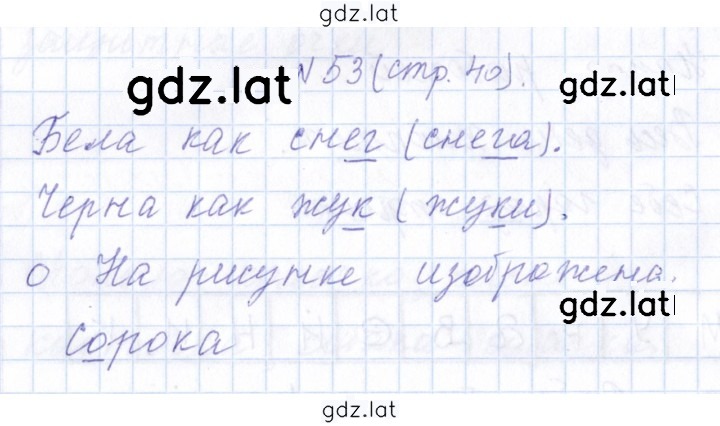 gdz.lat
N 53 (стр. 40).
gdz.lat
gdz.lat
Бела как снег (снега).
Черна как жук (жуки).
О На рисунке изображена.
gdz.lat
gdz.lat
сорока
gdz.lat